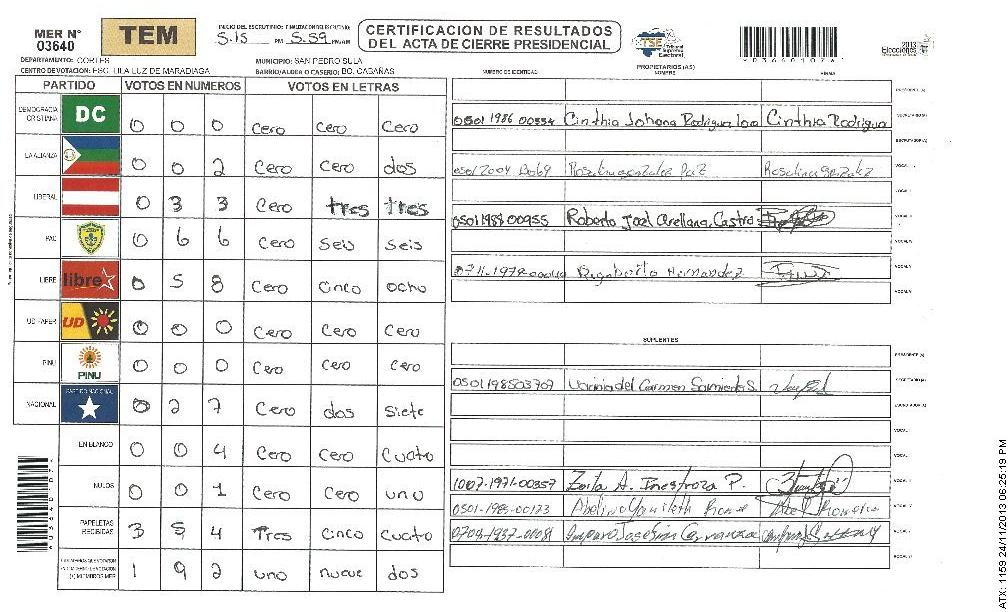 MER N° 03640
TEM
INICIO DEL ESCRUTINIO: FINALIZACION DEL ESCRUTINIO:
5.15 PM 5.59 PM/AM
CERTIFICACION DE RESULTADOS
DEL ACTA DE CIERRE PRESIDENCIAL
TSE Tribunal Supremo Electoral
Elecciones 2013
DEPARTAMENTO: CORTES MUNICIPIO: SAN PEDRO SULA
CENTRO DE VOTACION: ESC. LILA LUZ DE MARADIAGA BARRIO/ALDEA O CASERIO: BO. CABAÑAS
PARTIDO VOTOS EN NUMEROS VOTOS EN LETRAS
DEMOCRACIA CRISTIANA DC 0 0 0 Cero Cero Cero
LA ALIANZA 0 0 2 Cero Cero dos
LIBERAL 0 3 3 Cero tres tres
PAC 0 6 6 Cero Seis Seis
LIBRE libre 0 5 8 Cero Cinco ocho
UD FAPER UD 0 0 0 Cero Cero Cero
PINU PINU 0 0 0 Cero Cero Cero
NACIONAL PARTIDO NACIONAL 0 2 7 Cero dos Siete
EN BLANCO 0 0 4 Cero Cero Cuatro
NULOS 0 0 1 Cero Cero uno
PAPELETAS RECIBIDAS 3 5 4 Tres Cinco Cuatro
(+) MIEMBROS MER 1 9 2 uno nueve dos
PROPIETARIOS (AS)
NUMERO DE IDENTIDAD NOMBRE FIRMA
PRESIDENTE (A)
0501 1986 00334 Cinthia Johana Rodriguez Cinthia Rodrigua SECRETARIO (A)
ESCRUTADOR (A)
Rosalina gonzalez Paz Rosalina Gonzalez VOCAL I
VOCAL II
0501 1988 00955 Roberto Joel Arellano, Castro VOCAL III
VOCAL IV
Rigoberto Hernandez VOCAL V
VOCAL VI
SUPLENTES
PRESIDENTE (A)
0501198503707 del Carmen Sarmiento S. SECRETARIO (A)
ESCRUTADOR (A)
VOCAL I
VOCAL II
1007-1971-00357 Zoila A. Inestroza P. VOCAL III
0501-1985-00173 VOCAL IV
VOCAL V
VOCAL VI
ATX: 1159 24/11/2013 06:25:19 PM